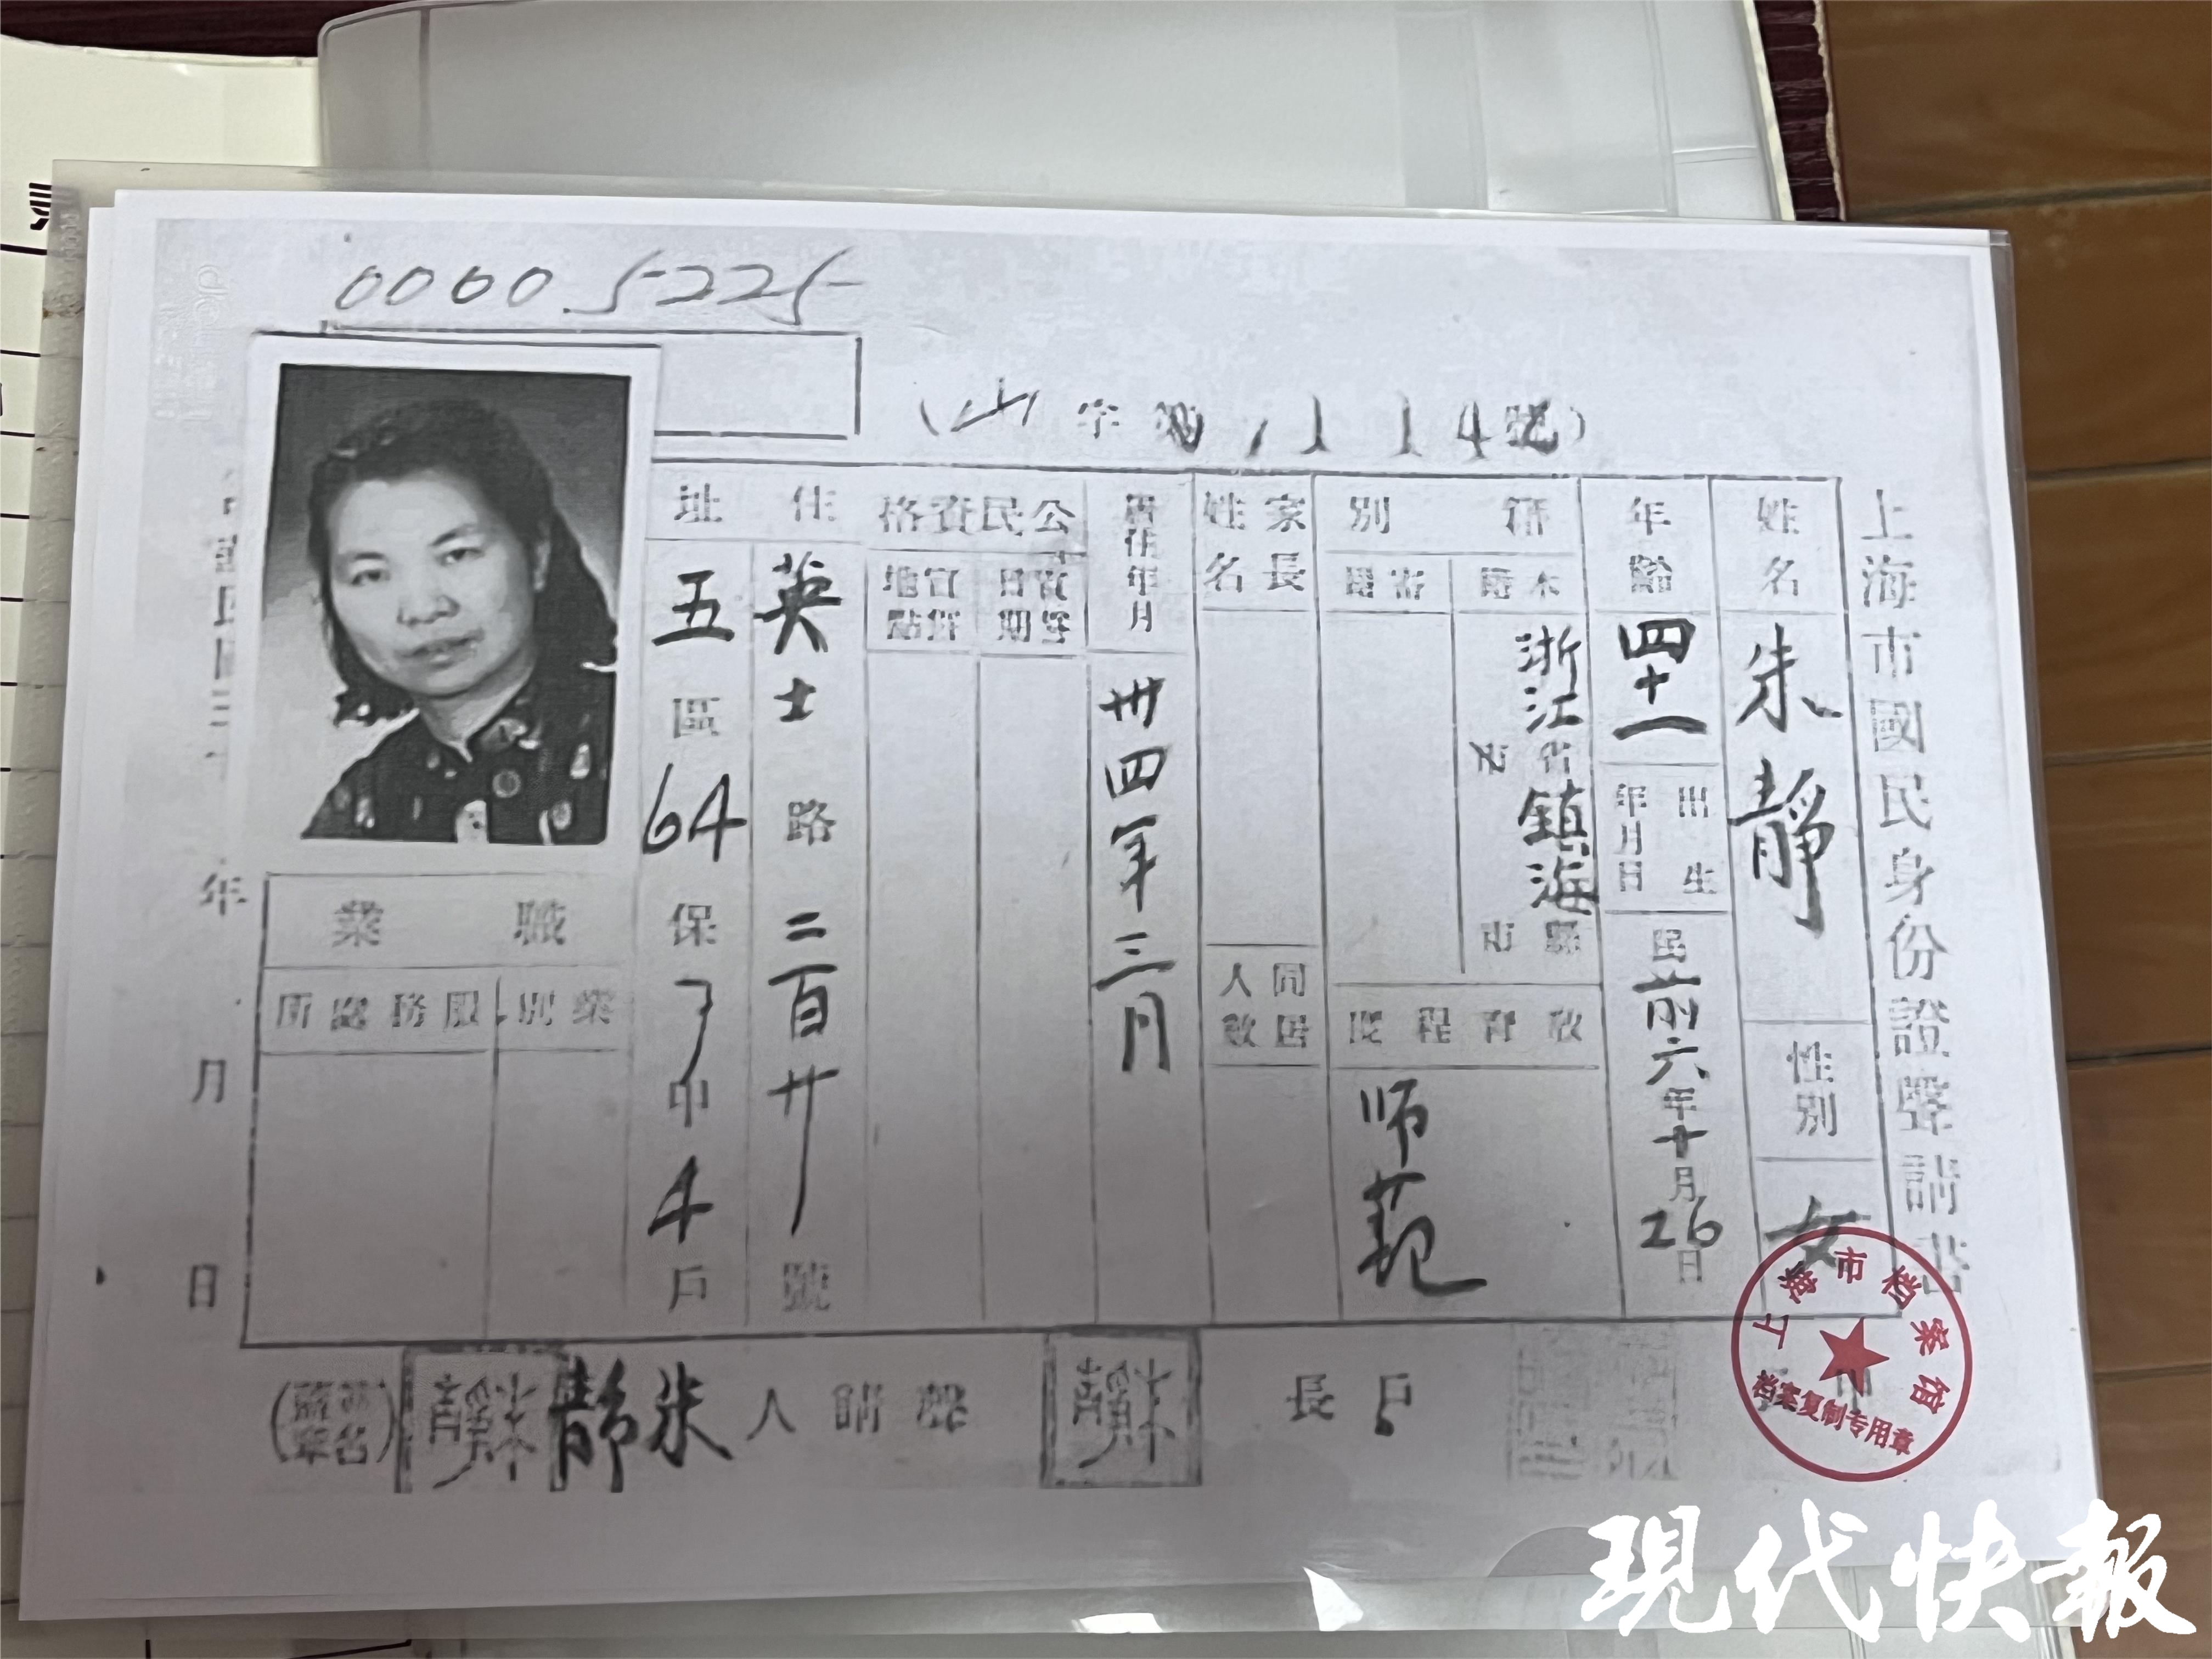 00005225
上海市國民身份證聲請書
姓名
朱靜
性別
女
年齡
四十一
出生年月日
民前六年十月26日
籍別
本籍
寄籍
浙江省鎮海縣
市
教育程度
师范
家長姓名
同居人數
居住年月
卅四年三月
公民資格
宣誓日期
宣誓地點
住址
英士路二百廿號
五區64保了甲4戶
職業
業別
服務處所
年
月
日
戶長
朱靜
聲請人朱靜
朱靜
(簽名蓋章)
上海市档案馆
档案复制专用章
現代快報